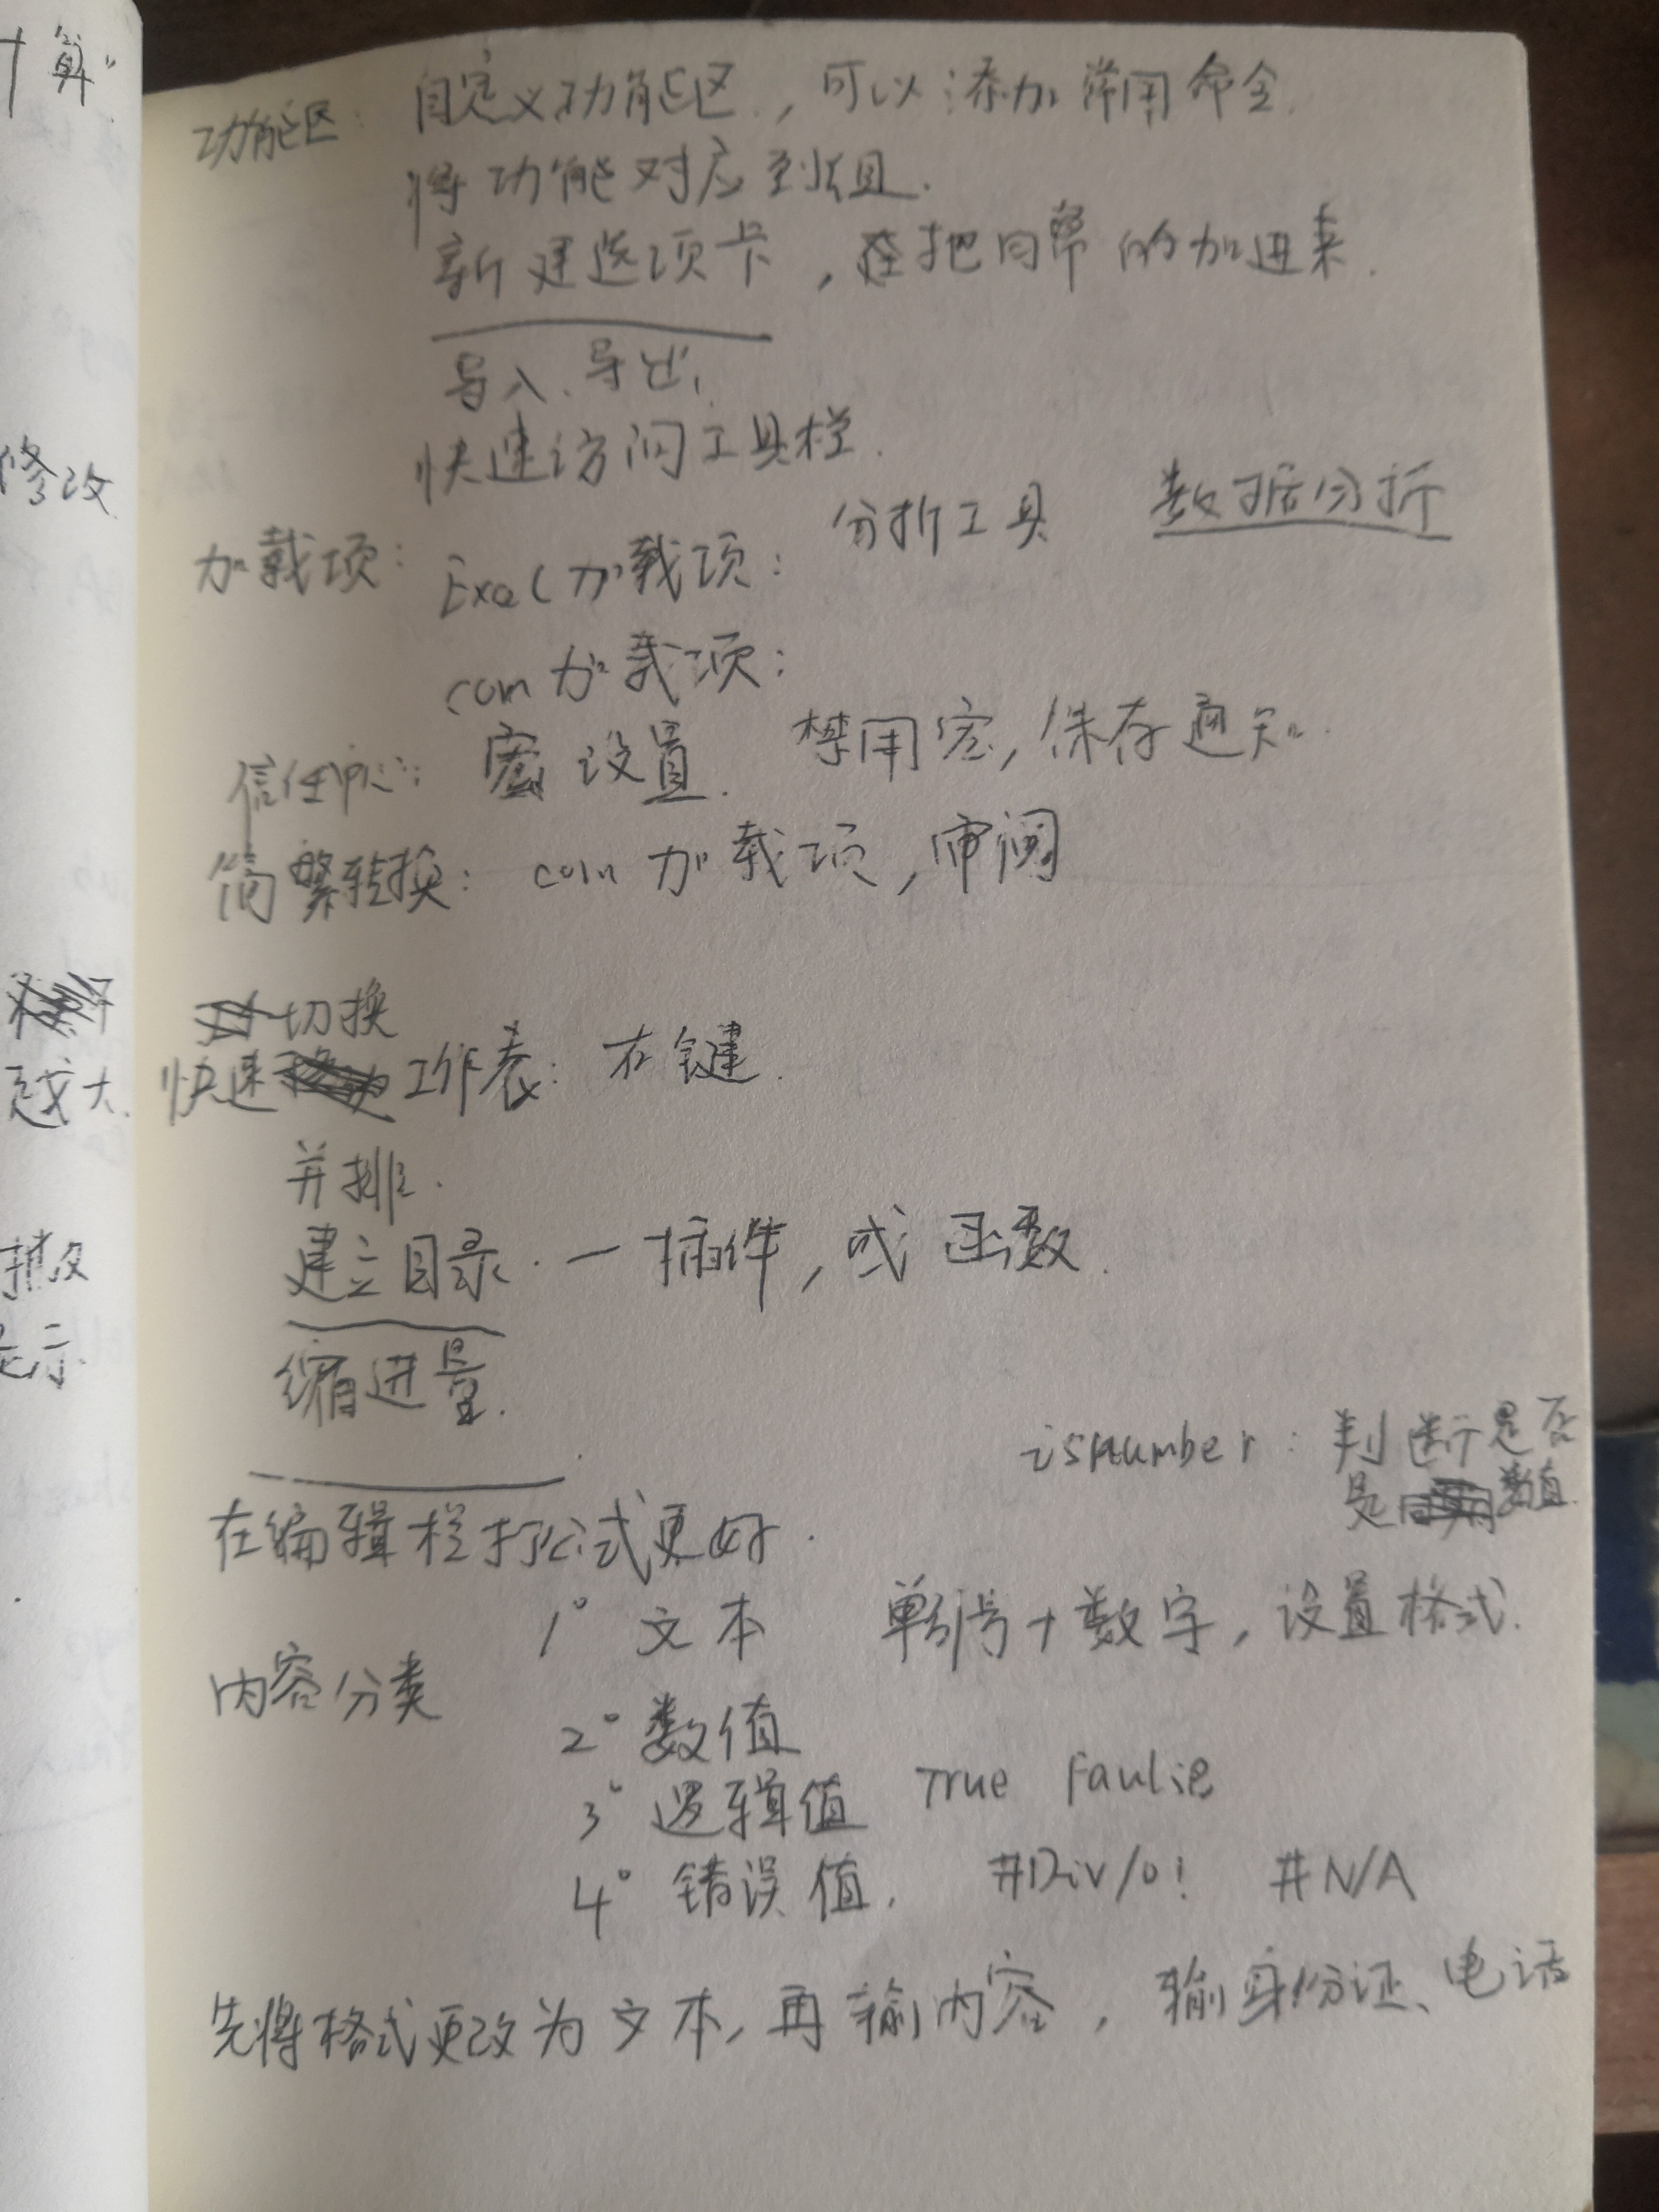 算"
修改
越大
示
功能区: 自定义功能区, 可以添加常用命令.
将功能对应到组.
新建选项卡, 在把日常的加进来.
导入、导出,
快速访问工具栏.
加载项: Excel加载项: 分折工具 数据分折
com加载项:
信任中心: 宏设置. 禁用宏, 保存通知.
简繁转换: com加载项, 审阅
切换
快速工作表: 右键.
并排.
建立目录. 一插件, 或函数.
缩进量.
isnumber: 判断是否
是数值
在编辑栏打公式更好.
1° 文本 单引号+数字, 设置格式.
内容分类
2° 数值
3° 逻辑值 True Faulse
4° 错误值. #Div/0! #N/A
先将格式更改为文本, 再输内容, 输身份证、电话